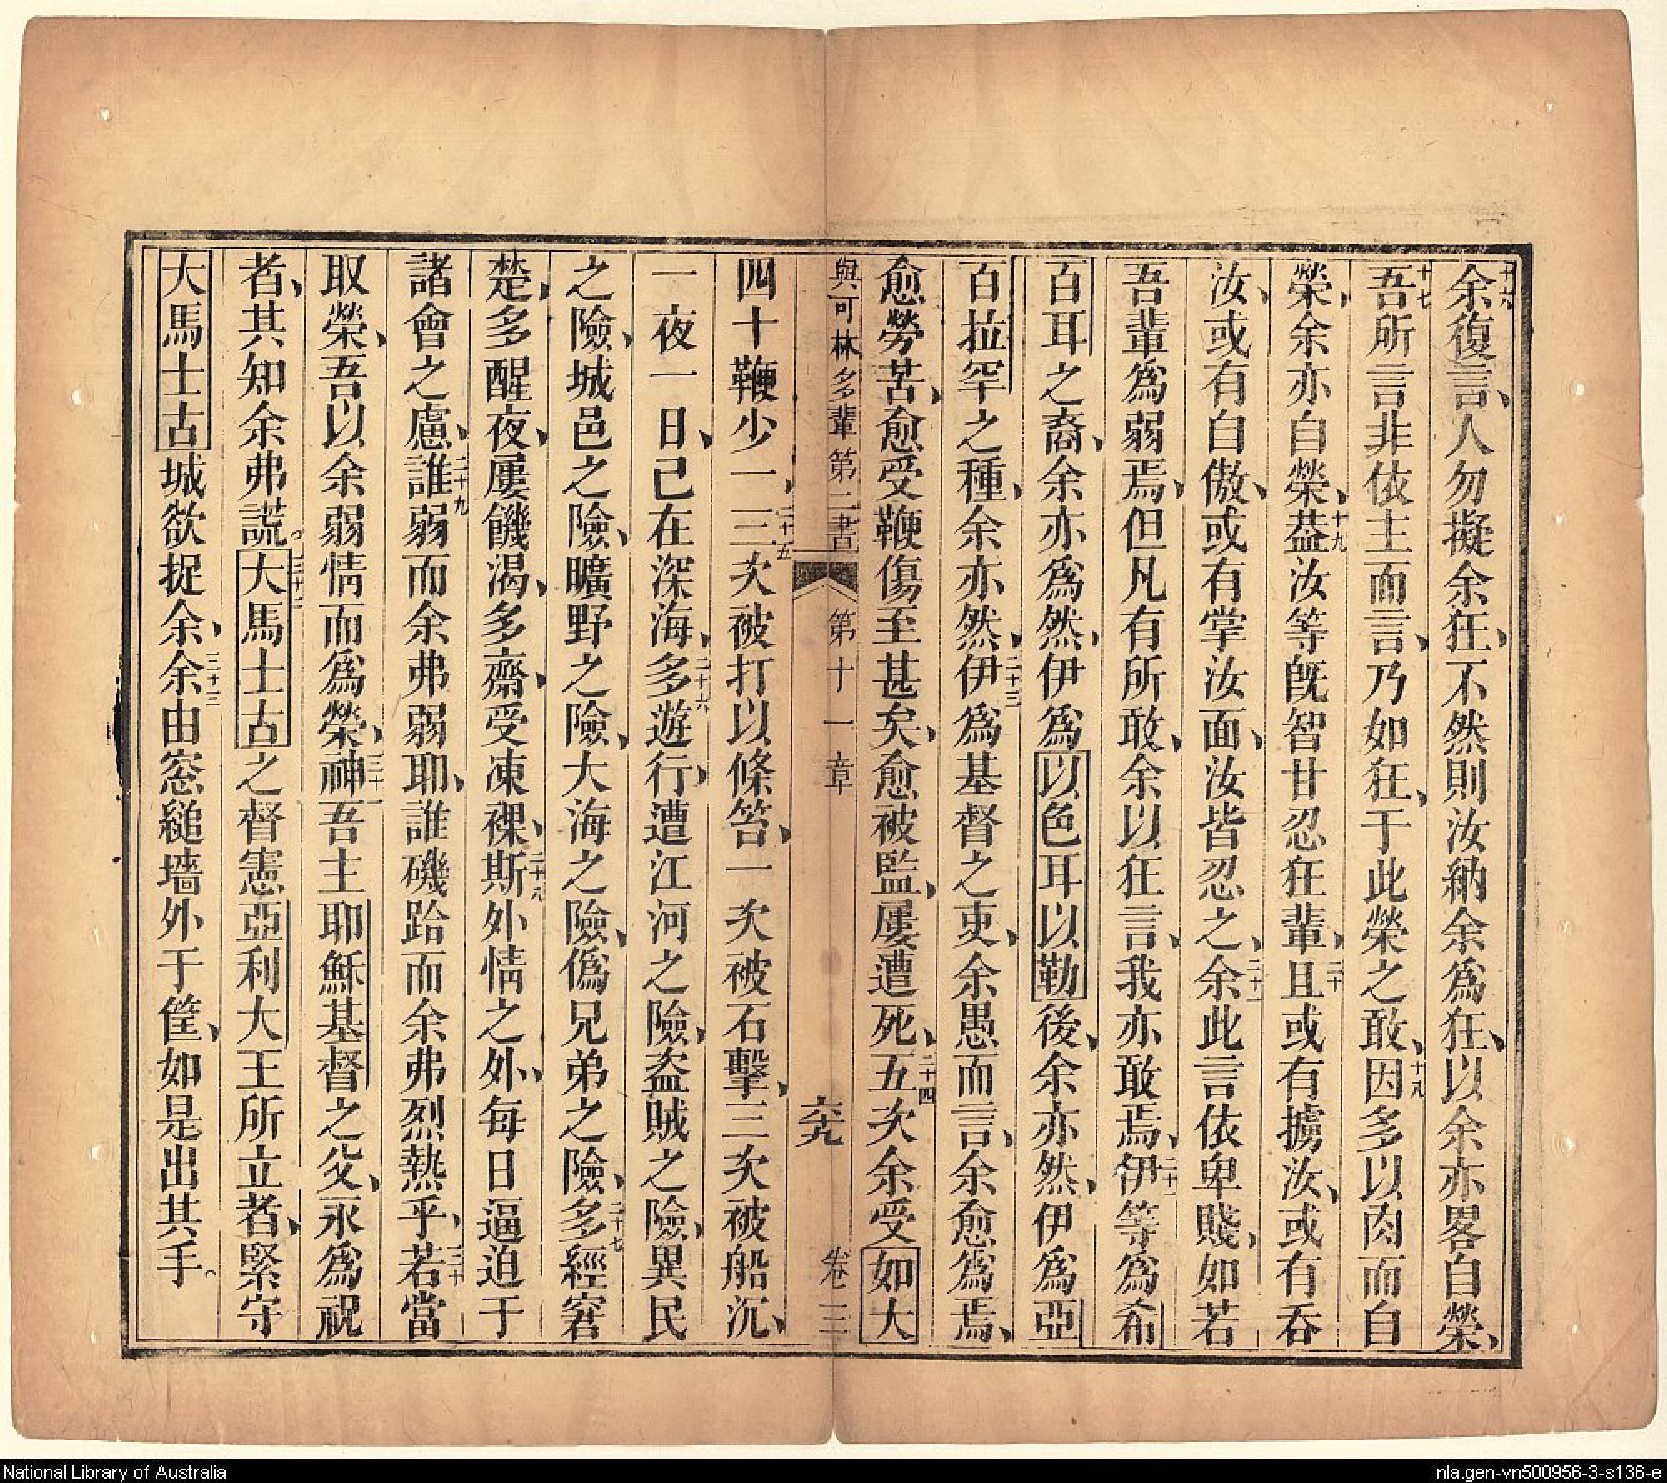 十六余復言、人勿擬余狂、不然則汝納余爲狂、以余亦畧自榮、
十七吾所言非依主而言、乃如狂、于此榮之敢、十八因多以肉而自
榮、余亦自榮、十九葢汝等旣智甘忍狂輩、二十且或有擄汝、或有吞
汝、或有自傲、或有掌汝面、汝皆忍之、二十一余此言依卑賤、如若
吾輩爲弱焉、但凡有所敢、余以狂言、我亦敢焉、二十二伊等爲希
百耳之裔、余亦爲然、伊爲以色耳以勒後、余亦然、伊爲亞
百拉罕之種、余亦然、二十三伊爲基督之吏、余愚而言、余愈爲焉、
愈勞苦、愈受鞭傷至甚矣、愈被監、屢遭死、二十四五次余受如大
與可林多輩第二書 第十一章 六九 卷三
四十鞭少一、二十五三次被打以條笞、一次被石擊、三次被船沉、
一夜一日、已在深海、二十六多遊行、遭江河之險、盜賊之險、異民
之險、城邑之險、曠野之險、大海之險、僞兄弟之險、二十七多經窘
楚、多醒夜、屢饑渴、多齋、受凍裸、二十八斯外情之外、每日逼迫于
諸會之慮、二十九誰弱而余弗弱耶、誰磯跲而余弗烈熱乎、三十若當
取榮、吾以余弱情而爲榮、三十一神吾主耶穌基督之父、永爲祝
者、其知余弗謊。三十二大馬士古之督憲亞利大王所立者、緊守
大馬士古城欲捉余、三十三余由窓縋墻外于筐、如是出其手。
National Library of Australia
nla.gen-vn500956-3-s136-e